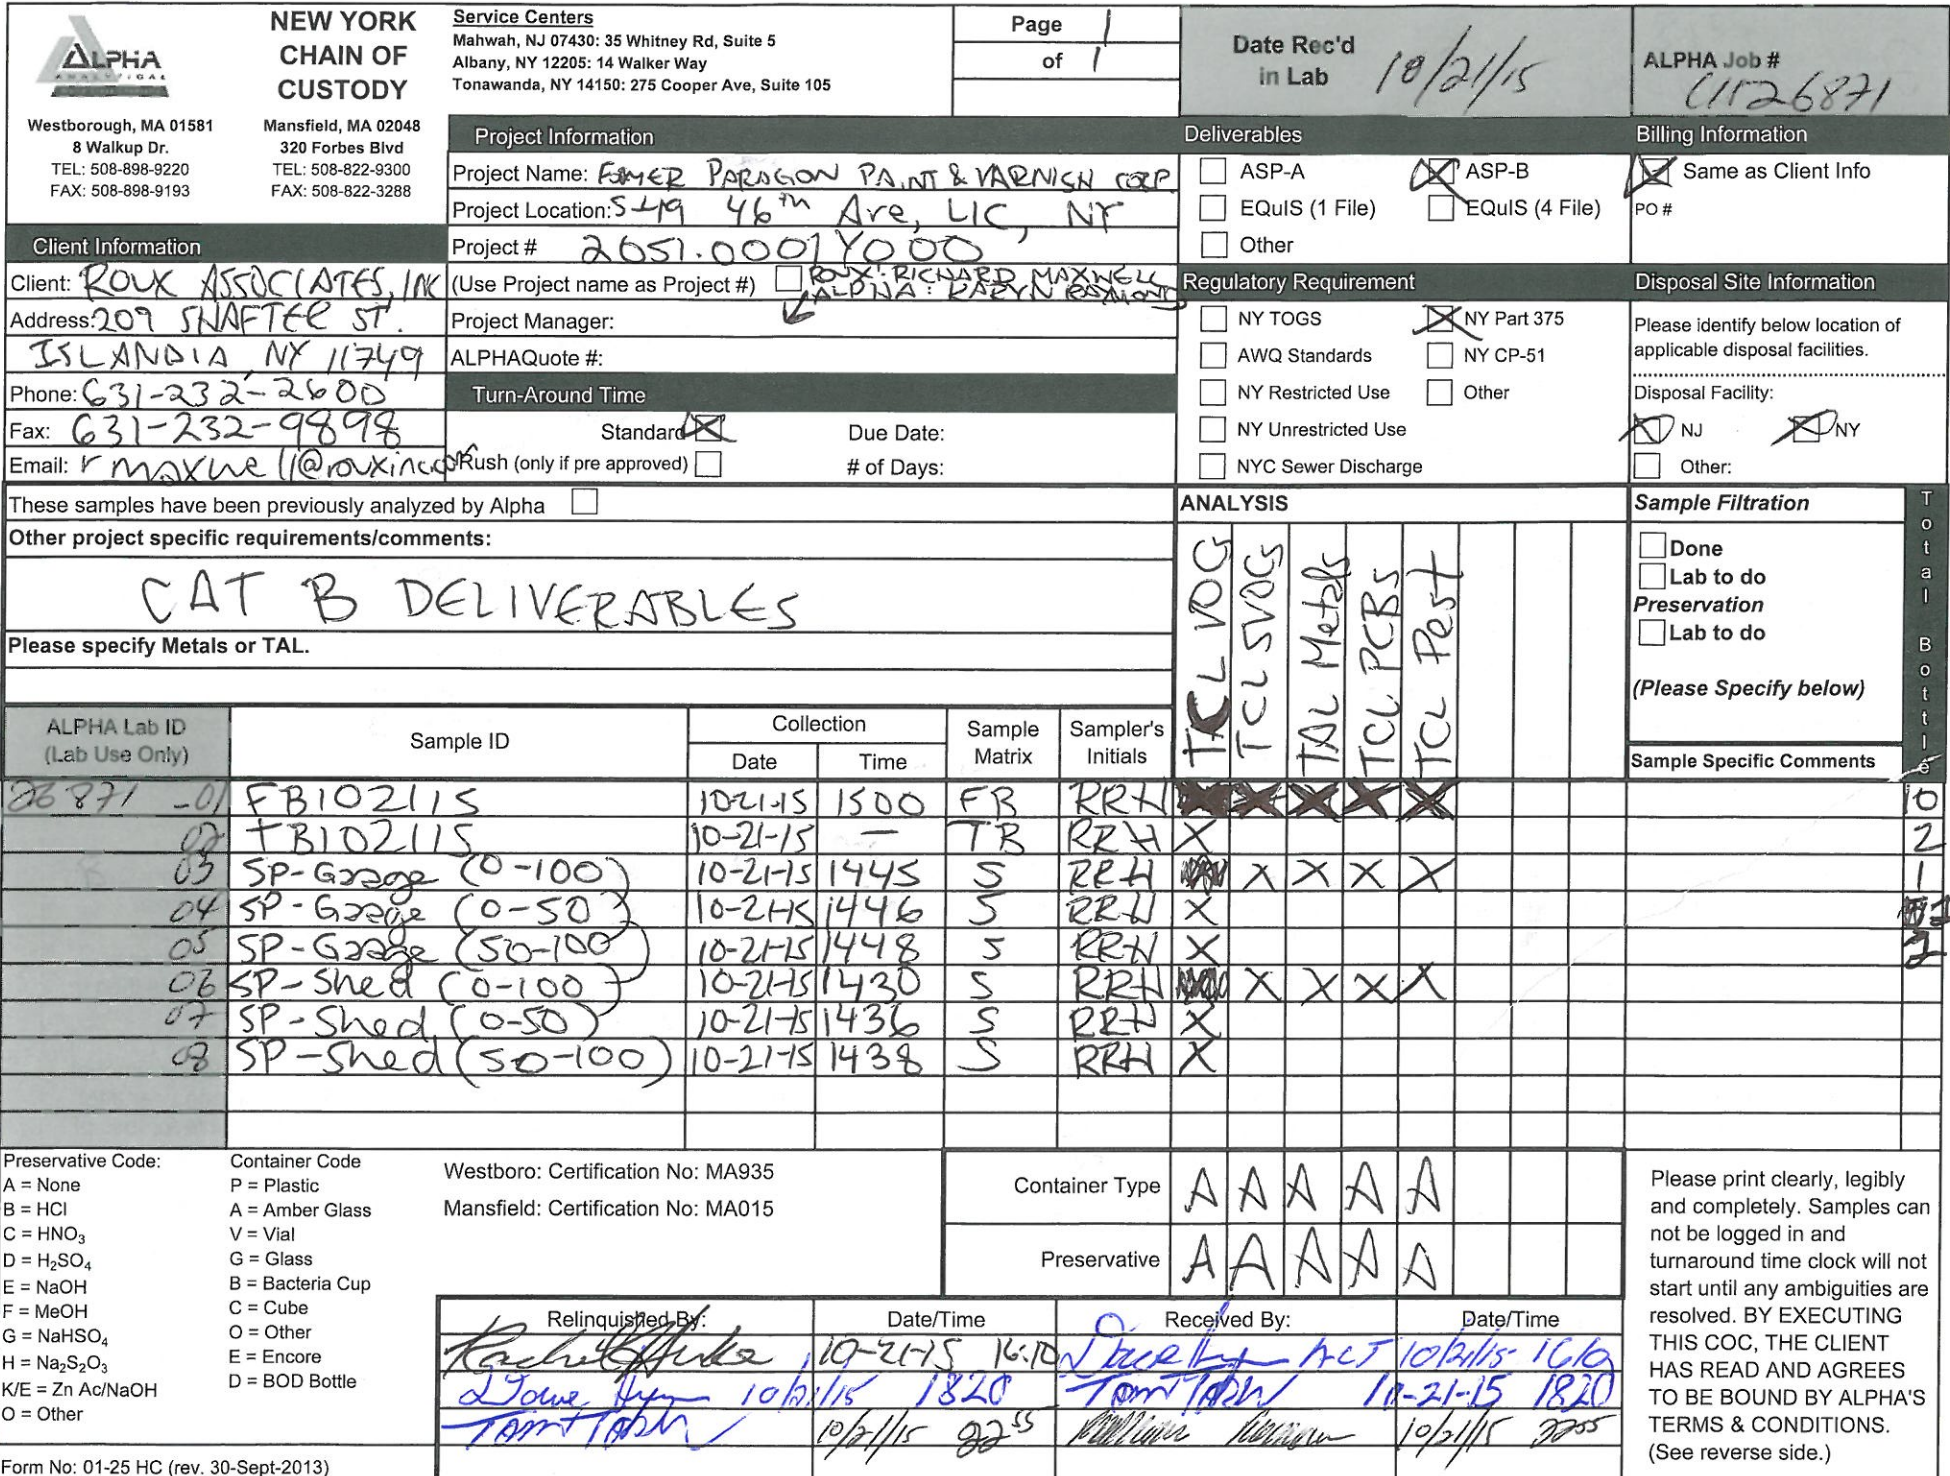 ALPHA
ANALYTICAL
Westborough, MA 01581
8 Walkup Dr.
TEL: 508-898-9220
FAX: 508-898-9193
NEW YORK
CHAIN OF
CUSTODY
Mansfield, MA 02048
320 Forbes Blvd
TEL: 508-822-9300
FAX: 508-822-3288
Service Centers
Mahwah, NJ 07430: 35 Whitney Rd, Suite 5
Albany, NY 12205: 14 Walker Way
Tonawanda, NY 14150: 275 Cooper Ave, Suite 105
Page 1
of 1
Date Rec'd
in Lab 10/21/15
ALPHA Job #
L1526871
Project Information
Project Name: FORMER PARAGON PAINT & VARNISH CORP
Project Location: 5-49 46th Ave, LIC, NY
Project # 2051.0001Y000
(Use Project name as Project #) ROUX: RICHARD MAXWELL
ALPHA: KARYN RAYMOND
Project Manager:
ALPHAQuote #:
Turn-Around Time
Standard
Due Date:
Rush (only if pre approved)
# of Days:
Client Information
Client: ROUX ASSOCIATES, INC
Address: 209 SHAFTER ST.
ISLANDIA, NY 11749
Phone: 631-232-2600
Fax: 631-232-9898
Email: rmaxwell@rouxinc.com
Deliverables
ASP-A X ASP-B
EQuIS (1 File) EQuIS (4 File)
Other
Regulatory Requirement
NY TOGS X NY Part 375
AWQ Standards NY CP-51
NY Restricted Use Other
NY Unrestricted Use
NYC Sewer Discharge
Billing Information
X Same as Client Info
PO #
Disposal Site Information
Please identify below location of
applicable disposal facilities.
Disposal Facility:
X NJ X NY
Other:
These samples have been previously analyzed by Alpha
Other project specific requirements/comments:
CAT B DELIVERABLES
Please specify Metals or TAL.
ANALYSIS
TCL VOCs
TCL SVOCs
TAL Metals
TCL PCBs
TCL Pest
Sample Filtration
Done
Lab to do
Preservation
Lab to do
(Please Specify below)
Sample Specific Comments
Total Bottle
ALPHA Lab ID
(Lab Use Only)
Sample ID
Collection
Date Time
Sample
Matrix
Sampler's
Initials
26871 -01 FB102115 10-21-15 1500 FB RRH X X X X X 10
02 TB102115 10-21-15 — TB RRH X 2
03 SP-Garage (0-100) 10-21-15 1445 S RRH X X X X 1
04 SP-Garage (0-50) 10-21-15 1446 S RRH X
05 SP-Garage (50-100) 10-21-15 1448 S RRH X
06 SP-Shed (0-100) 10-21-15 1430 S RRH X X X X
07 SP-Shed (0-50) 10-21-15 1436 S RRH X
08 SP-Shed (50-100) 10-21-15 1438 S RRH X
Preservative Code:
A = None
B = HCl
C = HNO3
D = H2SO4
E = NaOH
F = MeOH
G = NaHSO4
H = Na2S2O3
K/E = Zn Ac/NaOH
O = Other
Container Code
P = Plastic
A = Amber Glass
V = Vial
G = Glass
B = Bacteria Cup
C = Cube
O = Other
E = Encore
D = BOD Bottle
Westboro: Certification No: MA935
Mansfield: Certification No: MA015
Container Type A A A A A
Preservative A A A A A
Relinquished By: Date/Time Received By: Date/Time
10-21-15 16:10 ACT 10/21/15 1610
10/21/15 1820 10-21-15 1820
10/21/15 2255 10/21/15 2255
Please print clearly, legibly
and completely. Samples can
not be logged in and
turnaround time clock will not
start until any ambiguities are
resolved. BY EXECUTING
THIS COC, THE CLIENT
HAS READ AND AGREES
TO BE BOUND BY ALPHA'S
TERMS & CONDITIONS.
(See reverse side.)
Form No: 01-25 HC (rev. 30-Sept-2013)